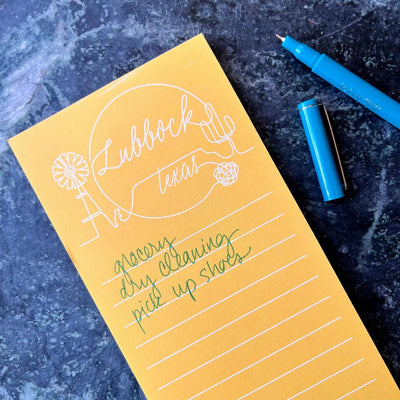 Lubbock
texas
grocery
dry cleaning
pick up shoes